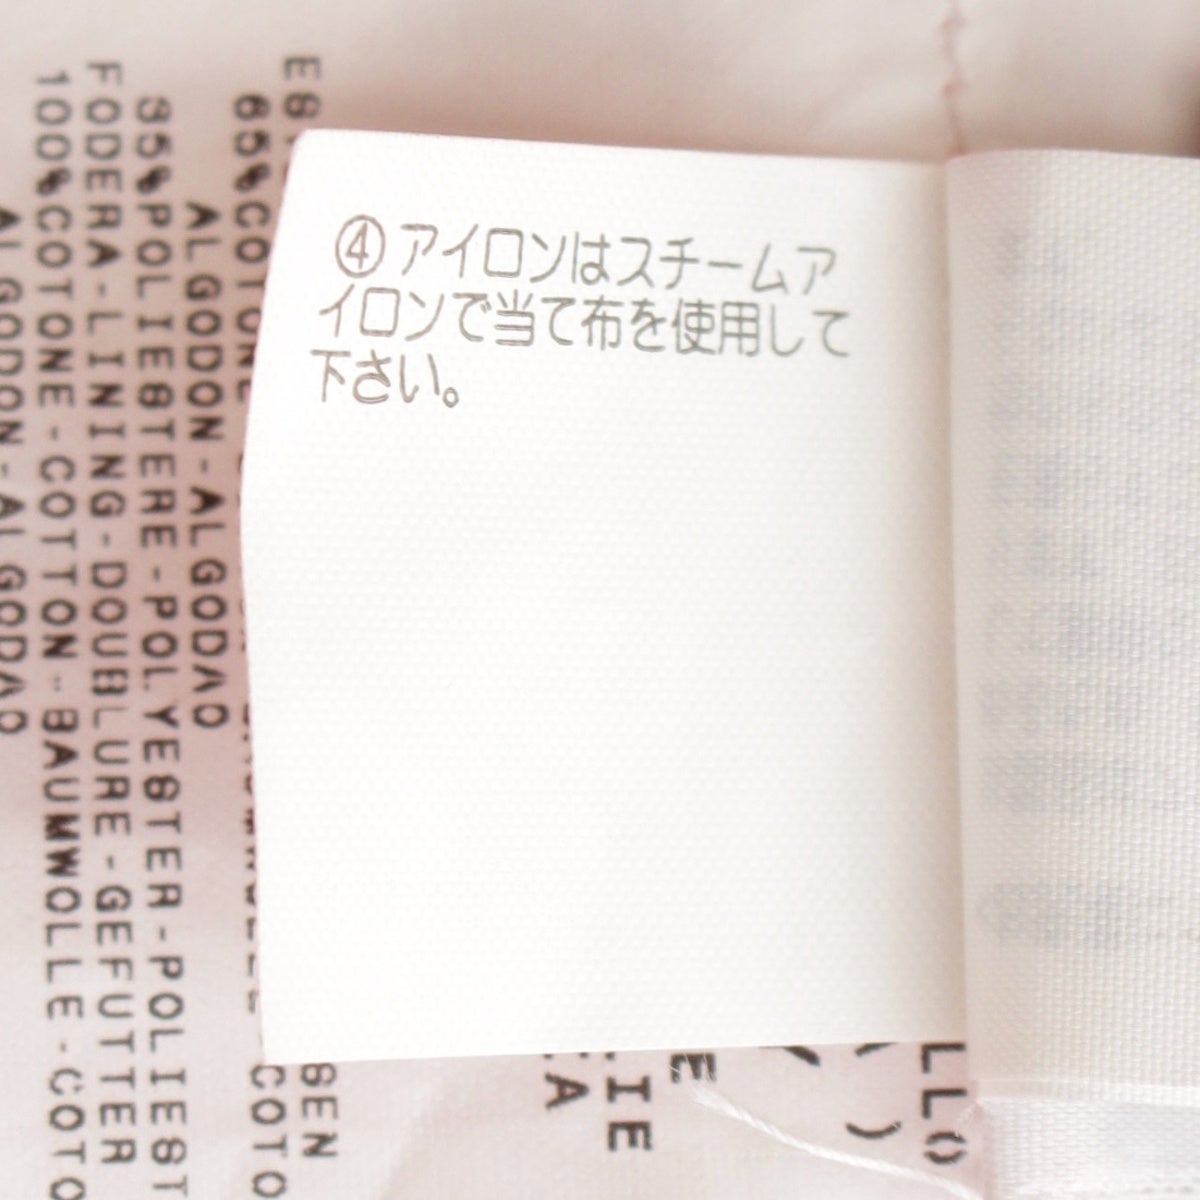 ④アイロンはスチームア
イロンで当て布を使用して
下さい。
65%COTONE
ALGODON-ALGODAO
35%POLIESTERE-POLYESTER-POLIEST
FODERA-LINING-DOUBLURE-GEFUTTER
100%COTONE-COTTON-BAUMWOLLE-COTO
ALGODON-ALGODAO